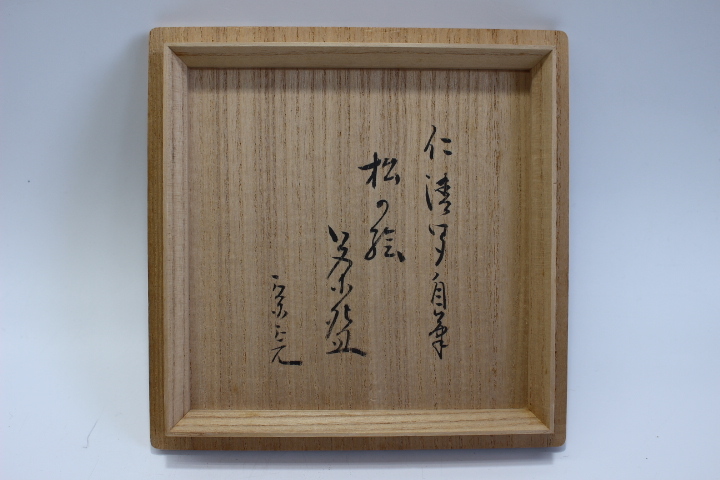 仁清写自筆
松の絵
茶碗